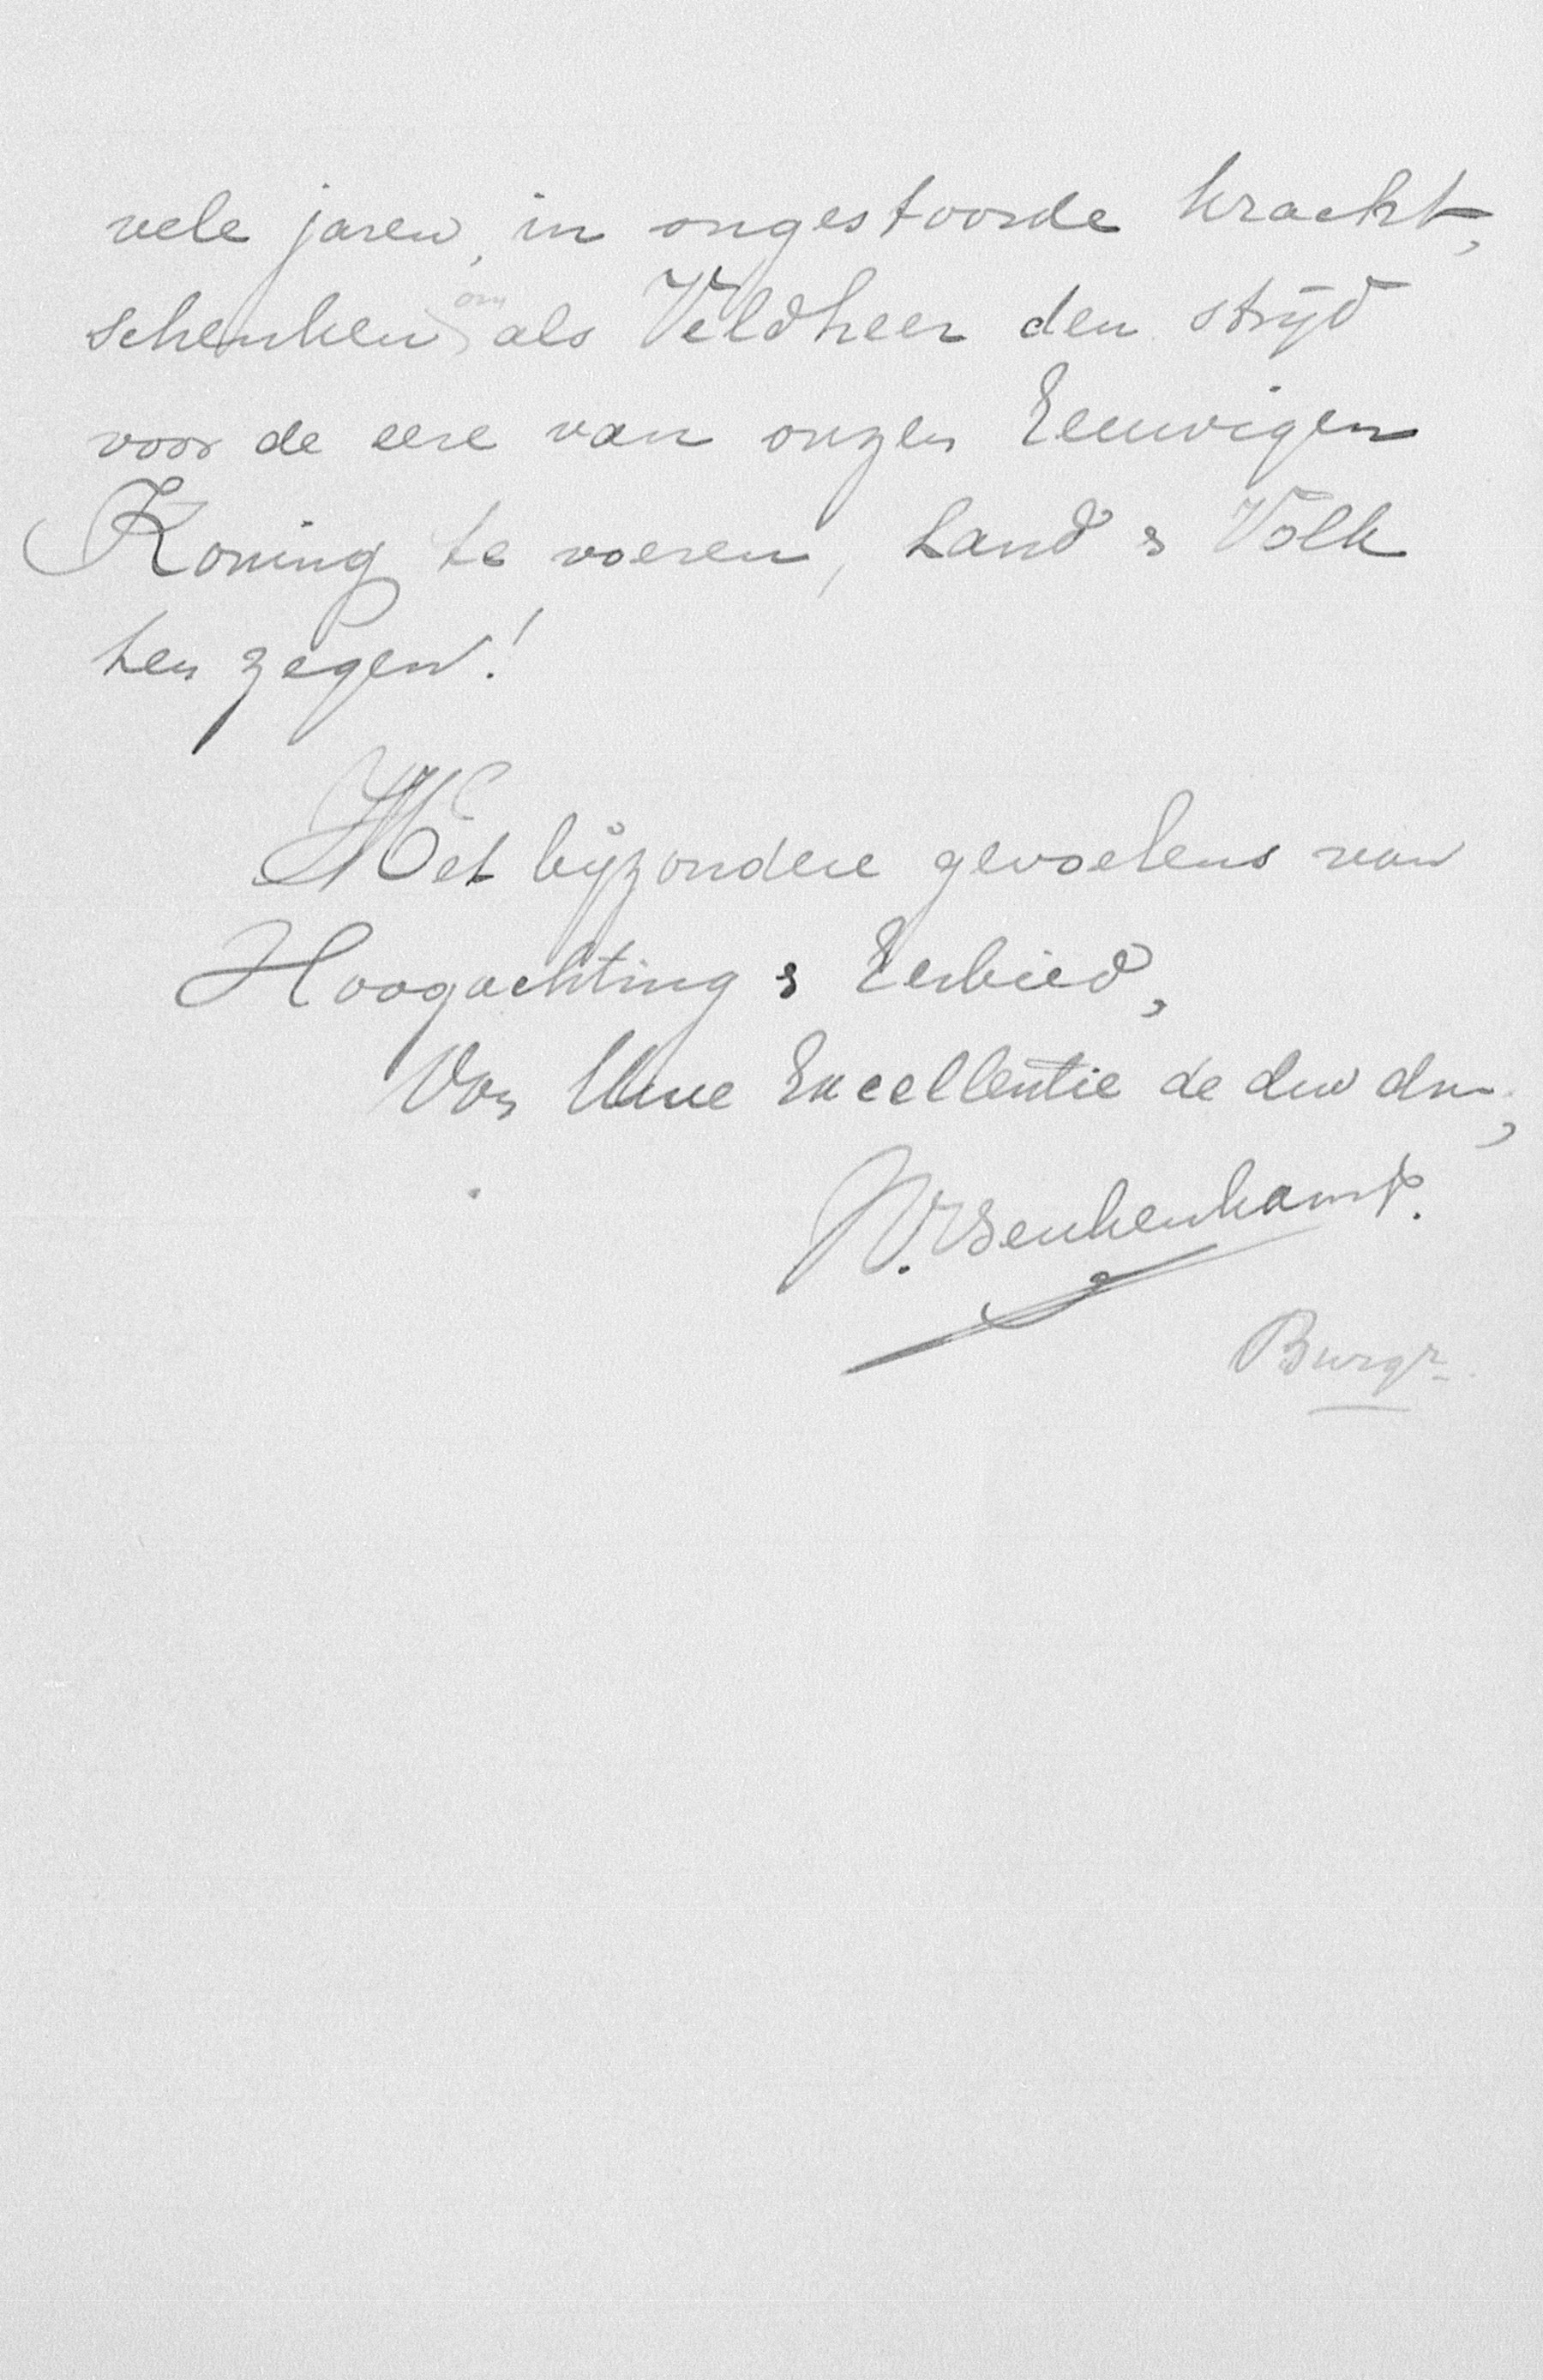 vele jaren, in ongestoorde kracht,
schenken om als Veldheer den strijd
voor de eere van onzen Eeuwigen
Koning te voeren, Land & Volk
ten zegen!
Met bijzondere gevoelens van
Hoogachting & Eerbied,
Van Uwe Excellentie de dw dr,
Burgr.